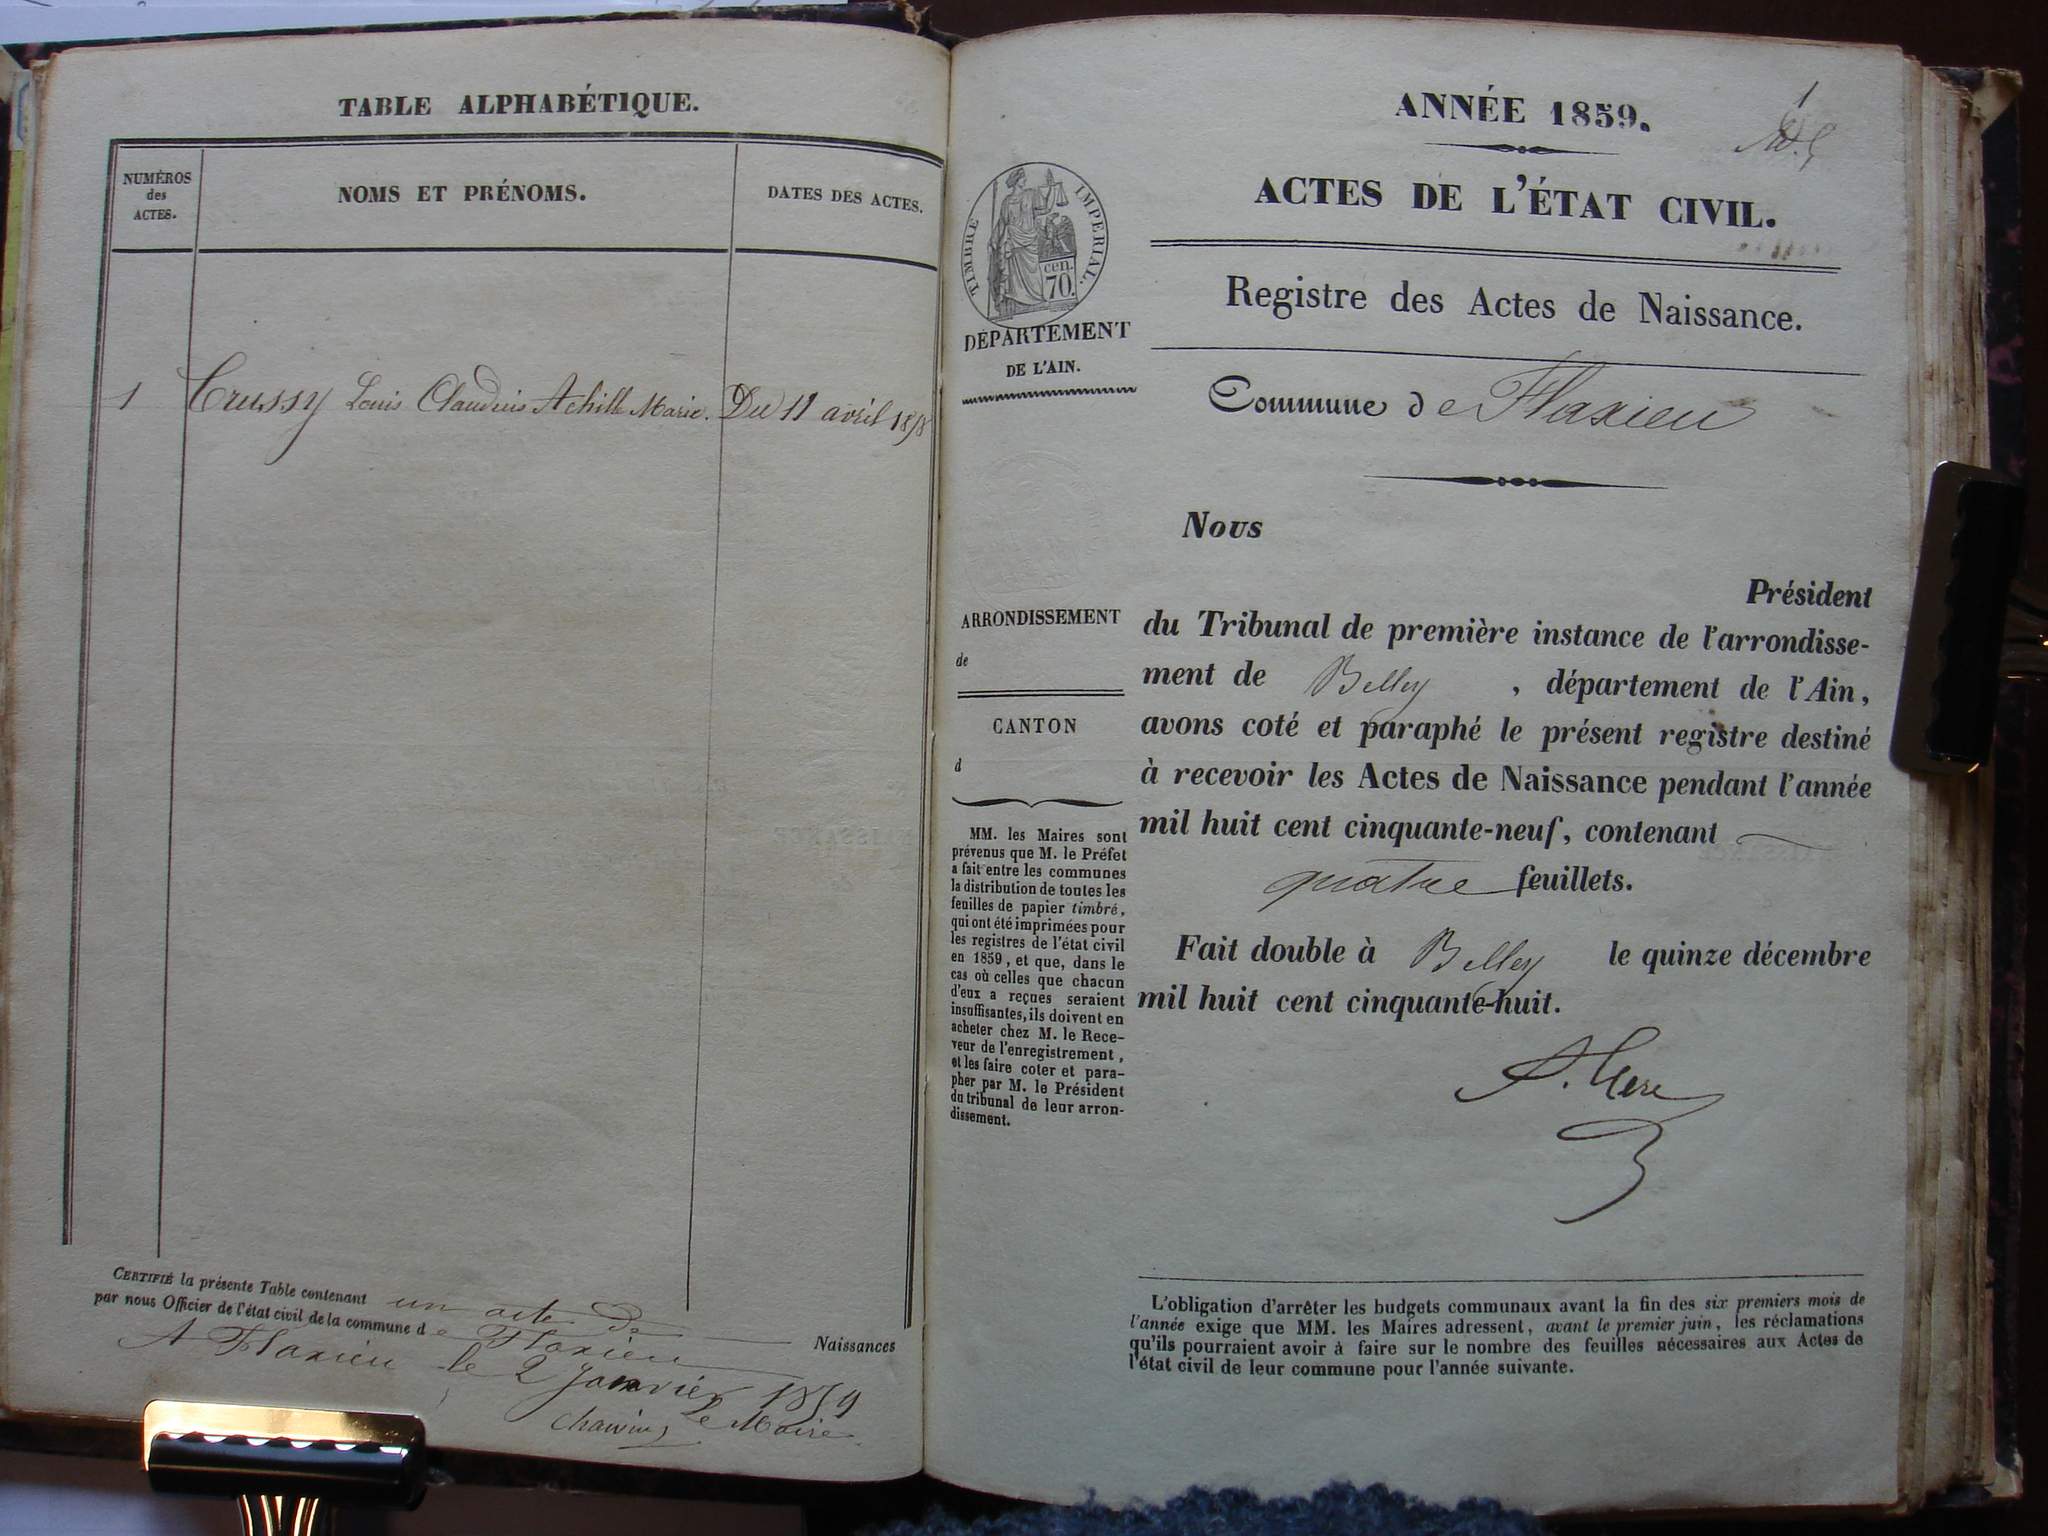 TABLE ALPHABÉTIQUE.
NUMÉROS
des
ACTES.
NOMS ET PRÉNOMS.
DATES DES ACTES.
1 Crussy Louis Claudius Achille Marie. Du 11 avril 1858
CERTIFIÉ la présente Table contenant un acte de Naissances
par nous Officier de l'état civil de la commune de Flaxieu
A Flaxieu le 2 Janvier 1859
Le Maire
ANNÉE 1859.
1
ACTES DE L'ÉTAT CIVIL.
TIMBRE IMPERIAL.
cen.
70.
Registre des Actes de Naissance.
DÉPARTEMENT
DE L'AIN.
Commune de Flaxieu
ARRONDISSEMENT
de
CANTON
d
MM. les Maires sont
prévenus que M. le Préfet
a fait entre les communes
la distribution de toutes les
feuilles de papier timbré,
qui ont été imprimées pour
les registres de l'état civil
en 1859, et que, dans le
cas où celles que chacun
d'eux a reçues seraient
insuffisantes, ils doivent en
acheter chez M. le Rece-
veur de l'enregistrement,
et les faire coter et para-
pher par M. le Président
du tribunal de leur arron-
dissement.
Nous
Président
du Tribunal de première instance de l'arrondisse-
ment de Belley, département de l'Ain,
avons coté et paraphé le présent registre destiné
à recevoir les Actes de Naissance pendant l'année
mil huit cent cinquante-neuf, contenant
quatre feuillets.
Fait double à Belley le quinze décembre
mil huit cent cinquante-huit.
L'obligation d'arrêter les budgets communaux avant la fin des six premiers mois de
l'année exige que MM. les Maires adressent, avant le premier juin, les réclamations
qu'ils pourraient avoir à faire sur le nombre des feuilles nécessaires aux Actes de
l'état civil de leur commune pour l'année suivante.